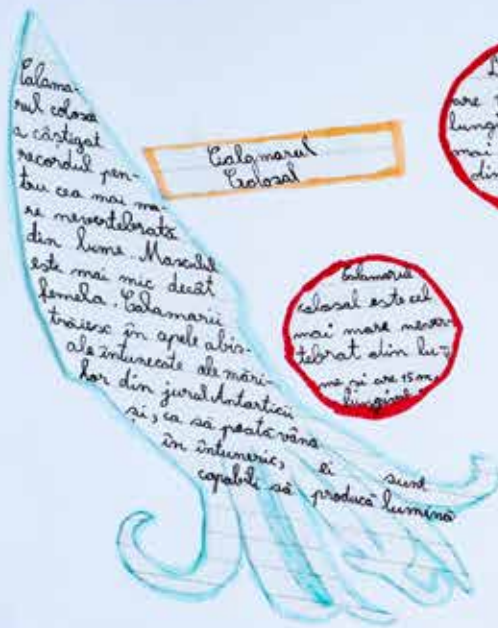 Calama-
rul colosal
a câștigat
recordul pen-
tru cea mai ma-
re nevertebrată
din lume. Masculul
este mai mic decât
femela. Calamarii
trăiesc în apele abis-
ale întunecate ale mări-
lor din jurul Antarticii
și, ca să poată vâna
în întuneric, ei sunt
capabili să producă lumină
Calamarul
Colosal
Calamarul
colosal este cel
mai mare never-
tebrat din lu-
me și are 15 m
lungime
are
lungi
mai
din